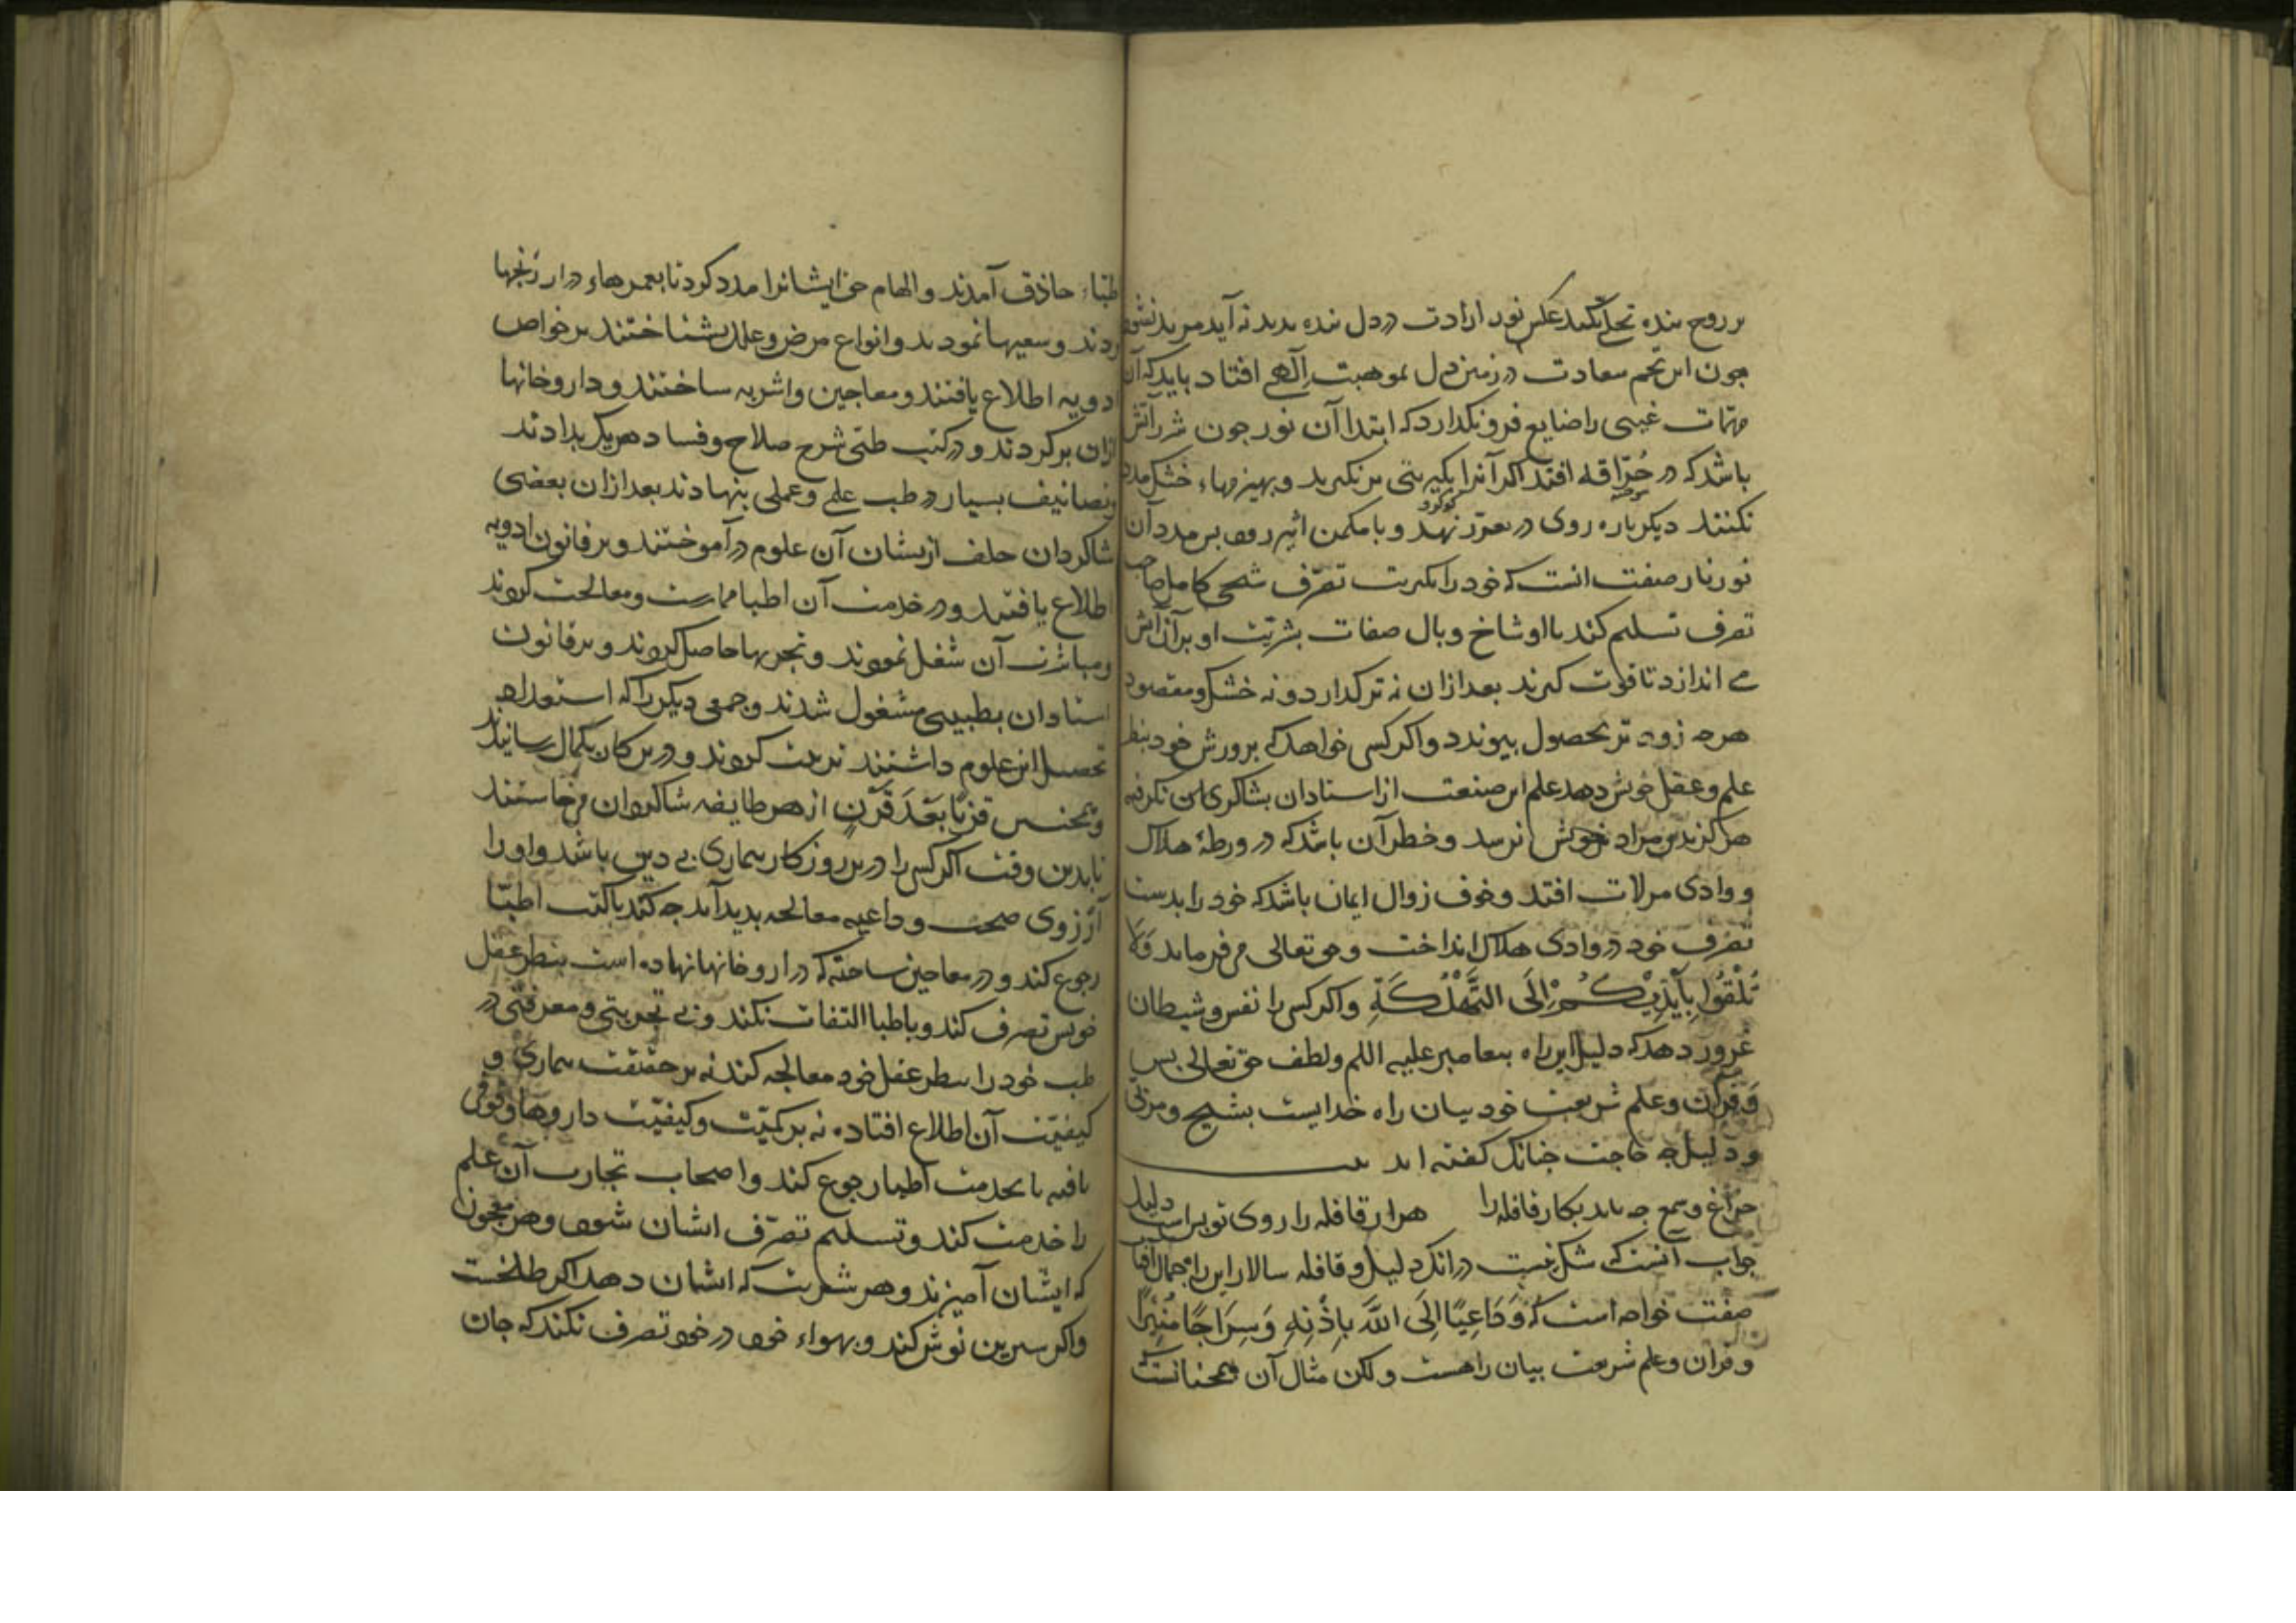 بر روح بنده تجلی نکند عکس نور ارادت در دل بنده بدید نه آید مرید نشود
جون این تخم سعادت در زمین دل بموهبت الهی افتاد باید که آن
مهمات غیبی را ضایع فرونکذارد که ابتدا آن نور جون شرر آتش
باشد که در حُرّاقه افتد اکر آنرا بکبریتی برنکیرند و بهیزمهاء خشک مدد
سوخته
کوکرد
نکنند دیکرباره روی در تعزز نهد و با مکمن اثیر رود بس مدد آن
نور نار صفت انست که خود را بکبریت تصرّف شیخی کامل صاحب
تصرف تسلیم کند تا او شاخ و بال صفات بشریّت او بر آن آتش
می اندازد تا قوت کیرند بعد ازان نه تر کذارد و نه خشک و مقصود
هرجه زود تر بحصول بیوندد و اکر کسی خواهد که برورش خود بنظر
علم و عقل خویش دهد علم این صنعت از استادان بشاکردی نکرفته
هرکز بدین مراد خویش نرسد و خطر آن باشد که در ورطۀ هلاک
و وادی مزلات افتد و خوف زوال ایمان باشد که خود را بدست
تصرف خود در وادی هلاک انداخت و حق تعالی می فرماید وَلَا
تُلْقُوا بِأَيْدِيكُمْ إِلَى التَّهْلُكَةِ و اکر کسی را نفس و شیطان
غرور دهد که دلیل این راه بیغامبر علیه السلم و لطف حق تعالی بس
وَقرآن و علم شریعت خود بیان راه خدایست بشیخ و مربّی
و دلیل جه حاجت جنانک کفته اند بیت
جراغ و شمع جه باید بکار قافله را هزار قافله را روی تو براست دلیل
جواب آنست که شک نیست در انک دلیل و قافله سالار این راه جمال آفتاب
صفت خواجه است که وَدَاعِيًا إِلَى اللَّهِ بِإِذْنِهِ وَسِرَاجًا مُنِيرًا
و قران و علم شریعت بیان راهست ولکن مثال آن همجنانست که
طبّاء حاذق آمدند و الهام حق ایشانرا مدد کرد تا بعمرهاء دراز رنجها
بردند و سعیها نمودند و انواع مرض و علل بشناختند بر خواص
ادویه اطلاع یافتند و معاجین و اشربه ساختند و داروخانها
ازان بر کردند و در کتب طبّی شرح صلاح و فساد هریک بدادند
و تصانیف بسیار در طب علمی و عملی بنهادند بعد ازان بعضی
شاکردان خلف ازیشان آن علوم درآموختند و بر قانون ادویه
اطلاع یافتند و در خدمت آن اطبا ممارست و معالجت کردند
و مباشرت آن شغل نمودند و تجربها حاصل کردند و بر قانون
استادان بطبیبی مشغول شدند و جمعی دیکر را که استعداد
تحصیل این علوم داشتند تربیت کردند و درین کان بکمال رسانیدند
و همجنین قَرنًا بَعْدَ قَرْنٍ از هر طایفه شاکردان می خاستند
تا بدین وقت اکر کسی را درین روزکار بیماری بدید باشد و او را
آرزوی صحت و داعیه معالجه بدید آید جه کند با کتب اطبّا
رجوع کند و در معاجین ساخته که در داروخانها نهاده است بنظر عقل
خویش تصرف کند و با طبا التفات نکند و بی تجربتی و معرفتی در
طب خود را بنظر عقل خود معالجه کند نه بر حقیقت بیماری و
کیفیّت آن اطلاع افتاده نه بر کمیّت و کیفیّت داروها وقوفی
یافته یا بخدمت اطبا رجوع کند و اصحاب تجارب آن علم
را خدمت کند و تسلیم تصرّف ایشان شود و هر معجون
که ایشان آمیزند و هر شربت که ایشان دهند اکر طلخست
و اکر شیرین نوش کند و بهواء خود در خود تصرف نکند که جان